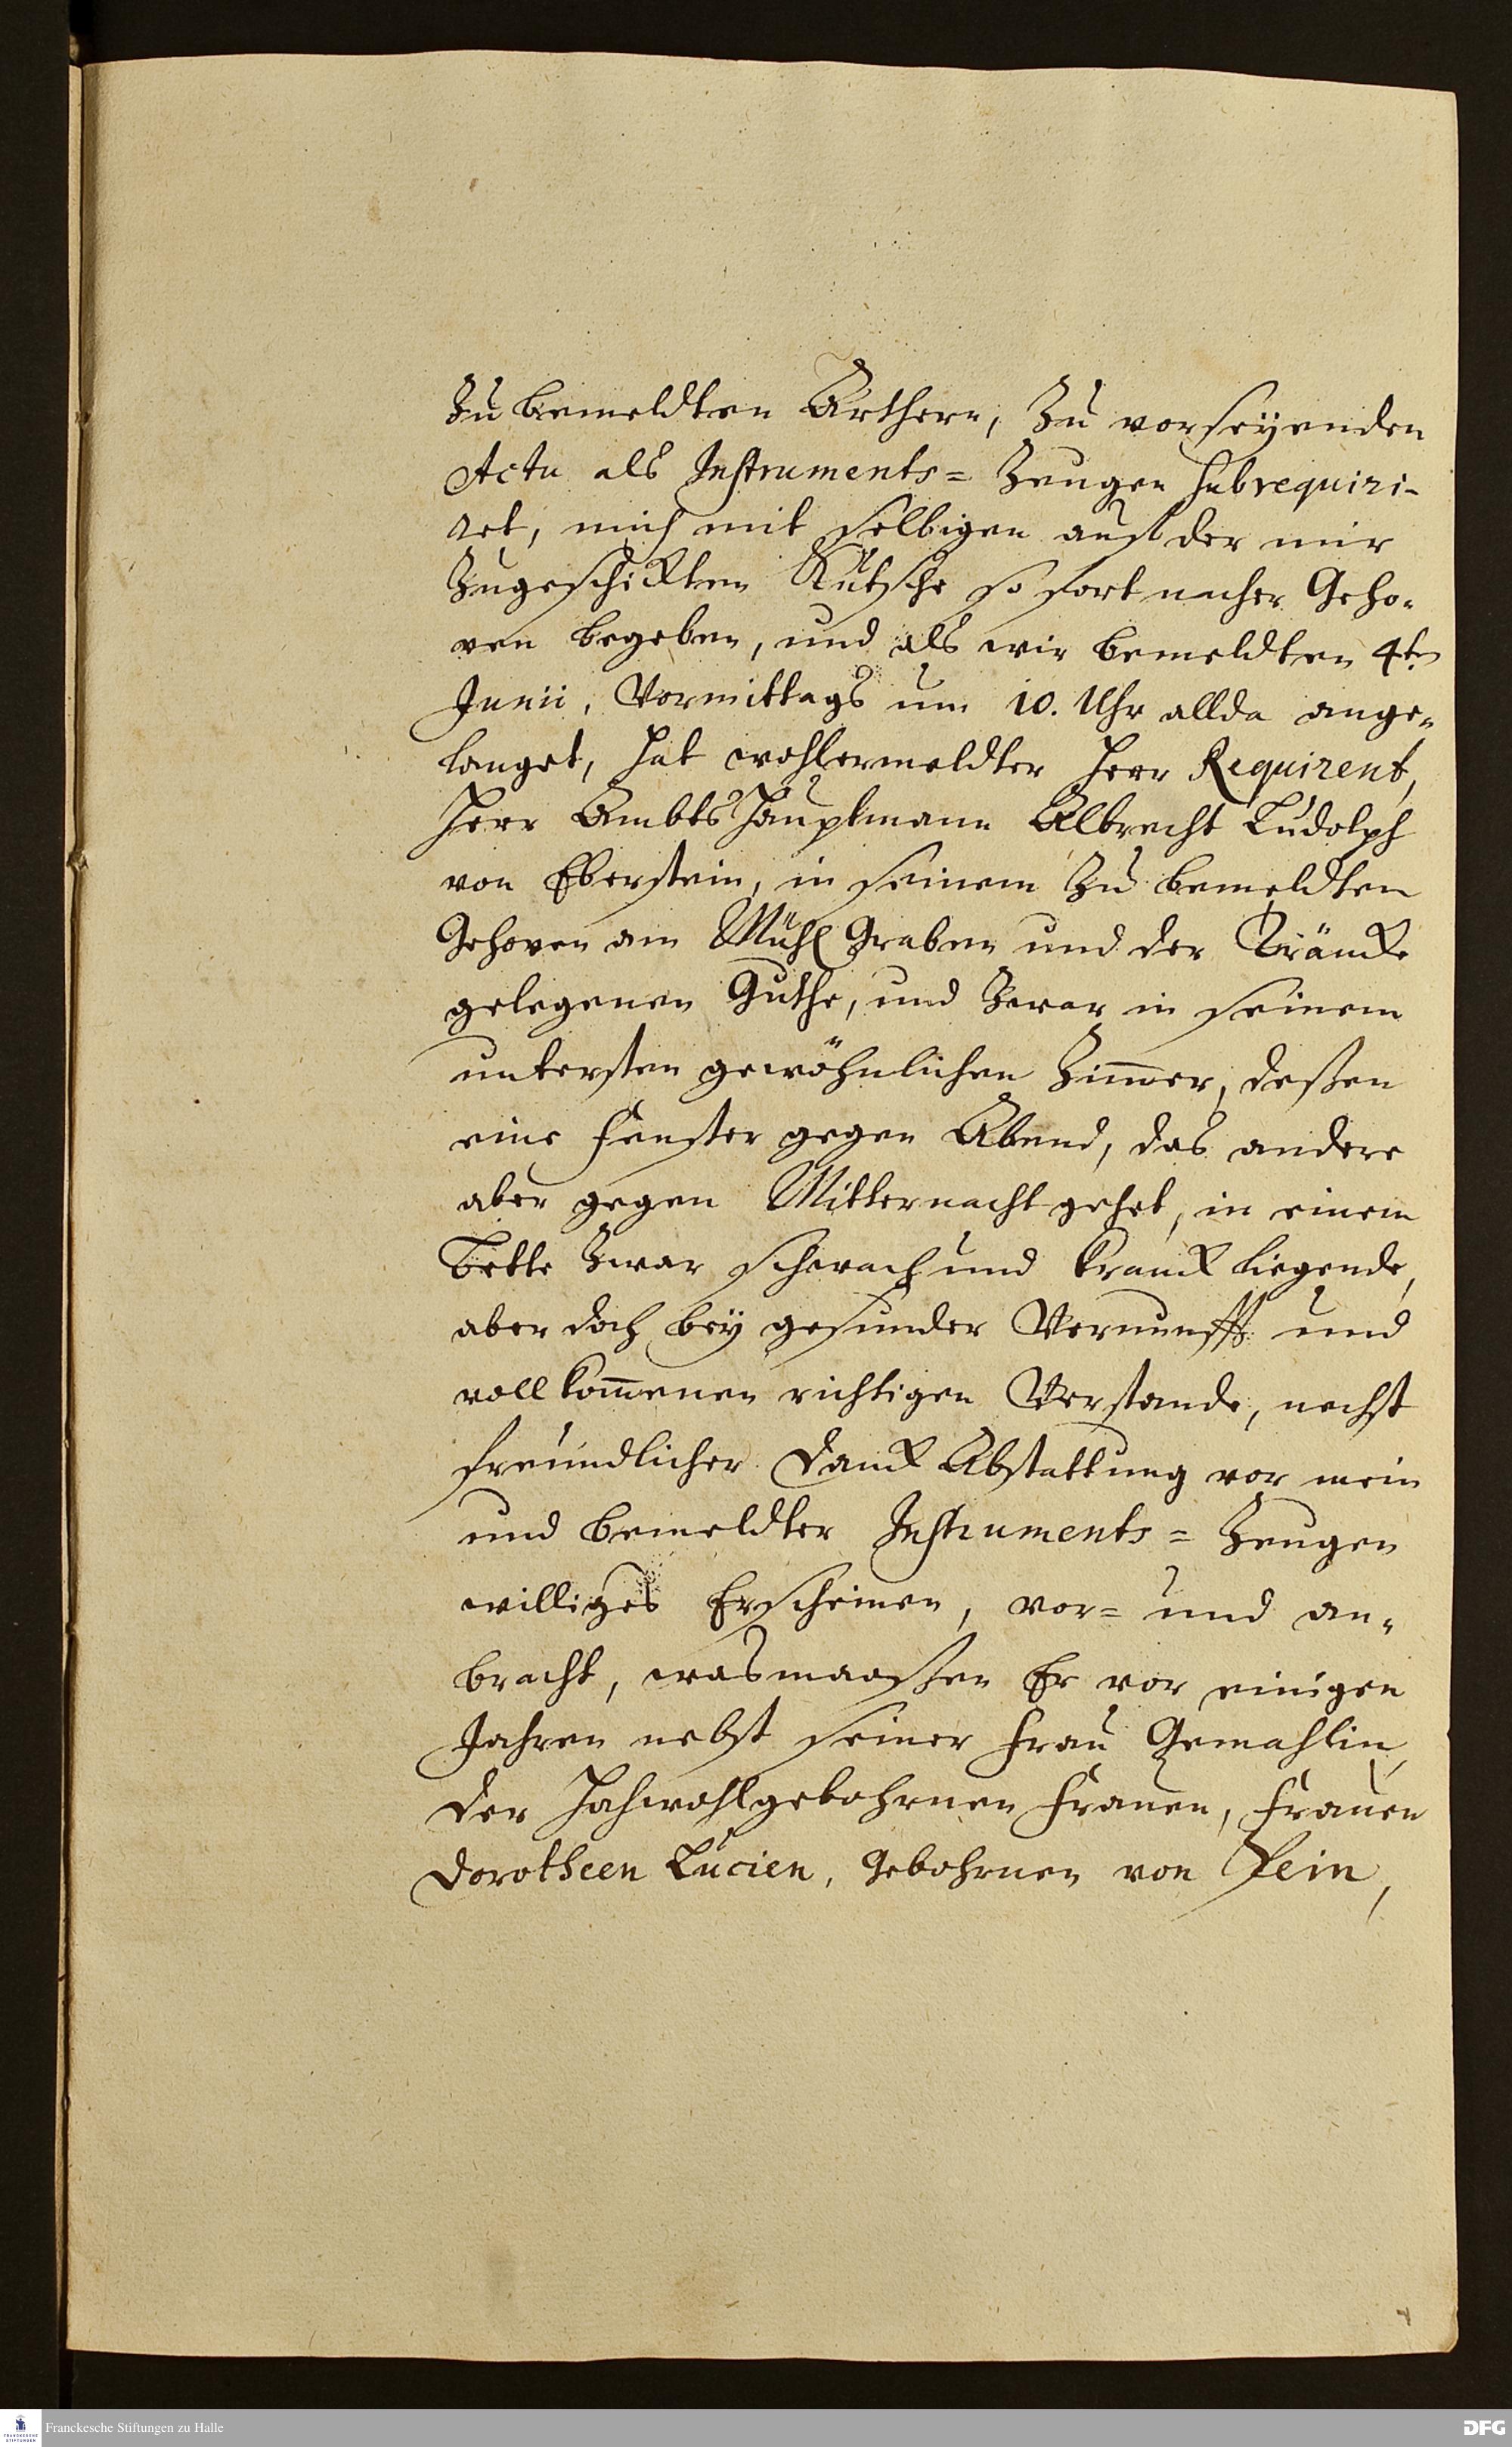 Zu bemeldten Arthern, Zu vorseyenden
Actu als Instruments= Zeugen subrequiri-
ret, mich mit selbigen auf der mir
Zugeschickten Kutsche so fort nacher Geho-
ven begeben, und als wir bemeldten 4ten
Junii, Vormittags um 10. Uhr allda ange-
langet, hat wohlermeldter Herr Requirent,
Herr Ambts Hauptmann Albrecht Ludolph
von Eberstein, in seinem Zu bemeldten
Gehoven am Mühl Graben und der Träncke
gelegenen Guthe, und Zwar in seinem
untersten gewöhnlichen Zimmer, deßen
eine Fenster gegen Abend, das andere
aber gegen Mitternacht gehet, in einem
Bette Zwar schwach und kranck liegende,
aber doch bey gesunder Vernunfft und
vollkommenen richtigen Verstande, nechst
freundlicher Danck Abstattung vor mein
und bemeldter Instruments= Zeugen
williges Erscheinen, vor= und an-
bracht, wasmaaßen Er vor einigen
Jahren nebst seiner Frau Gemahlin,
der Hochwohlgebohrnen Frauen, Frauen
Dorotheen Lucien, Gebohrnen von Pein,
Franckesche Stiftungen zu Halle
DFG